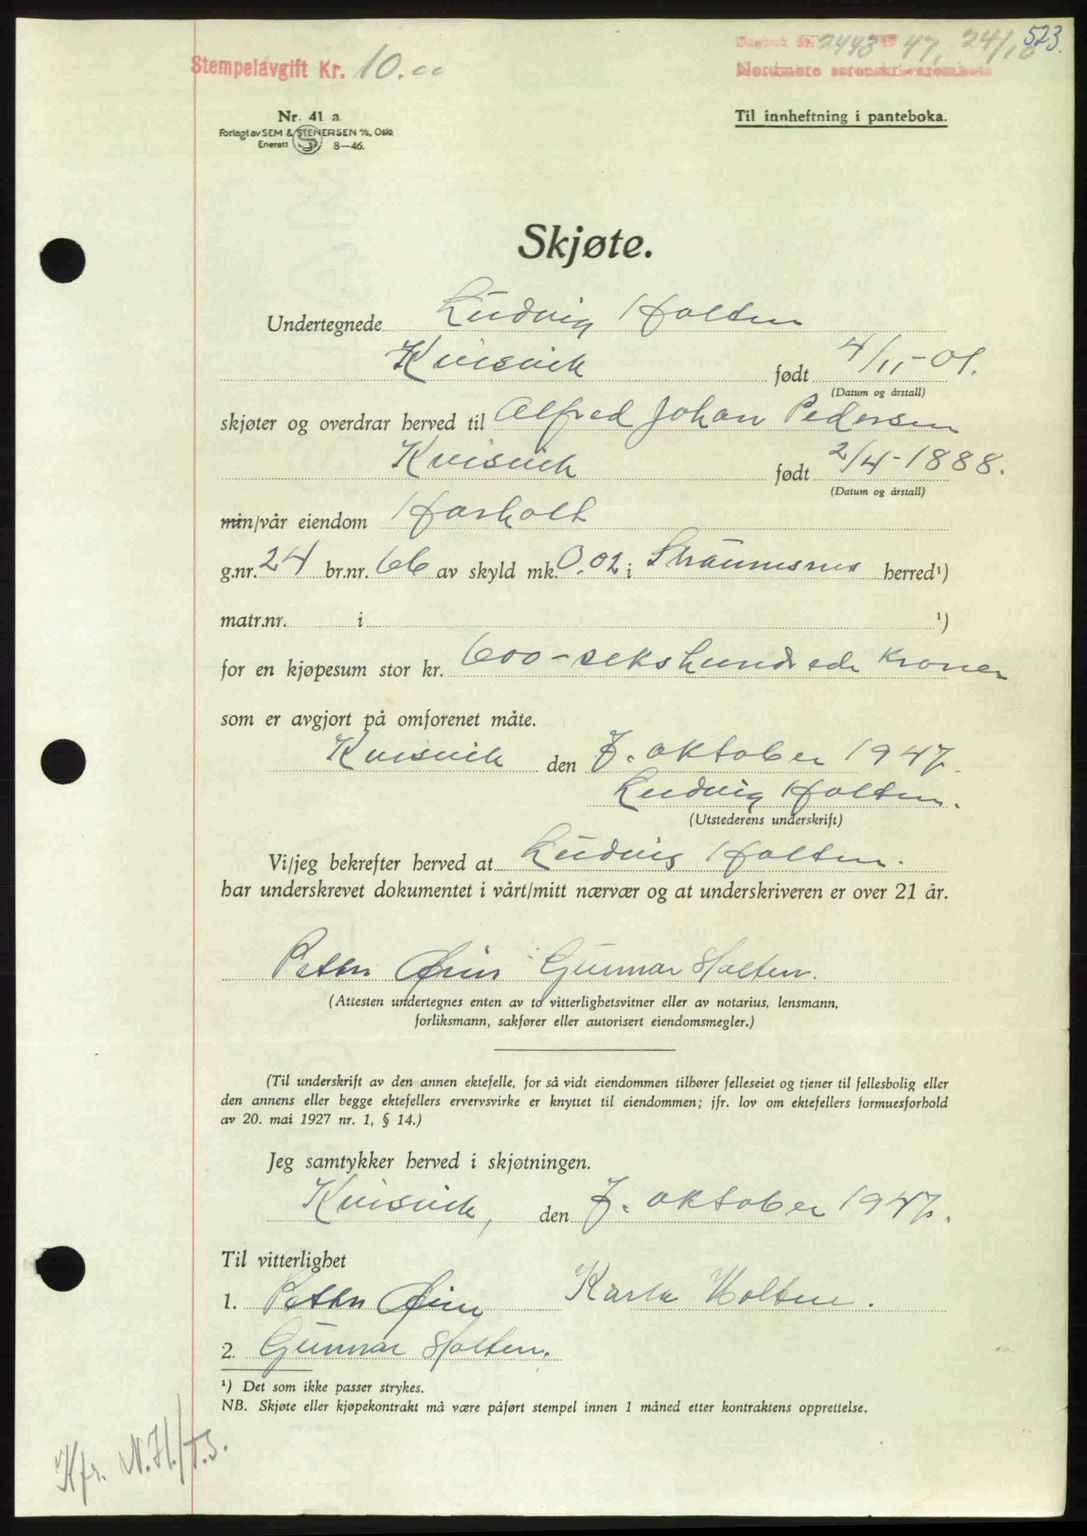 523.
Dagbok nr. 2443 19 47, 24/10
Stempelavgift Kr. 10.00
Nordmøre sorenskriverembete
Nr. 41 a
Til innheftning i panteboka.
Forlagt av SEM & STENERSEN A/S, Oslo
Enerett 8–46.
Skjøte.
Undertegnede Ludvig Holten
Kvisvik født 4/11-01.
(Datum og årstall)
skjøter og overdrar herved til Alfred Johan Pedersen
Kvisvik født 2/4-1888.
(Datum og årstall)
min/vår eiendom Harholt
g.nr. 24 br.nr. 66 av skyld mk. 0.02 i Straumsnes herred¹)
matr.nr. i ¹)
for en kjøpesum stor kr. 600 - sekshundrede kroner
som er avgjort på omforenet måte.
Kvisvik den 7. oktober 1947.
Ludvig Holten.
(Utstederens underskrift)
Vi/jeg bekrefter herved at Ludvig Holten.
har underskrevet dokumentet i vårt/mitt nærvær og at underskriveren er over 21 år.
Petter Øien Gunnar Holten.
(Attesten undertegnes enten av to vitterlighetsvitner eller av notarius, lensmann,
forliksmann, sakfører eller autorisert eiendomsmegler.)
(Til underskrift av den annen ektefelle, for så vidt eiendommen tilhører felleseiet og tjener til fellesbolig eller
den annens eller begge ektefellers ervervsvirke er knyttet til eiendommen; jfr. lov om ektefellers formuesforhold
av 20. mai 1927 nr. 1, § 14.)
Jeg samtykker herved i skjøtningen.
Kvisvik, den 7. oktober 1947.
Til vitterlighet
1. Petter Øien Karla Holten.
2. Gunnar Holten.
¹) Det som ikke passer strykes.
NB. Skjøte eller kjøpekontrakt må være påført stempel innen 1 måned etter kontraktens opprettelse.
Kfr. N.H./T.S.